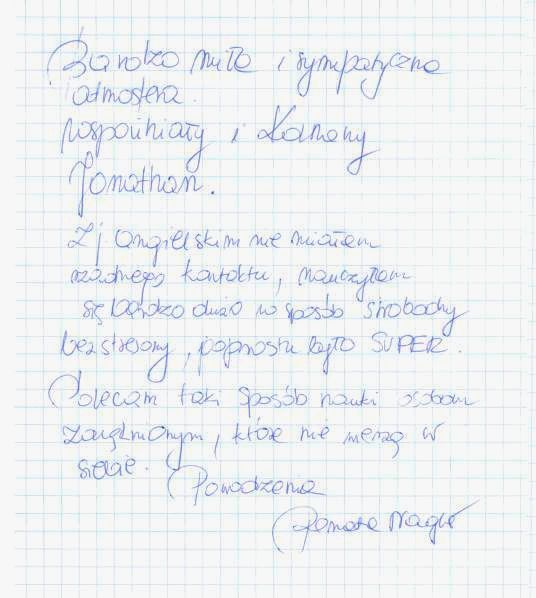 Bardzo miła i sympatyczna
atmosfera.
Wspaniały i kochany
Jonathan.
Z j angielskim nie miałam
żadnego kontaktu, nauczyłam
się bardzo dużo w sposób swobodny
bezstresowy, poprostu było SUPER.
Polecam taki sposób nauki osobom
, które nie wierzą w
siebie.
Powodzenia
Renata